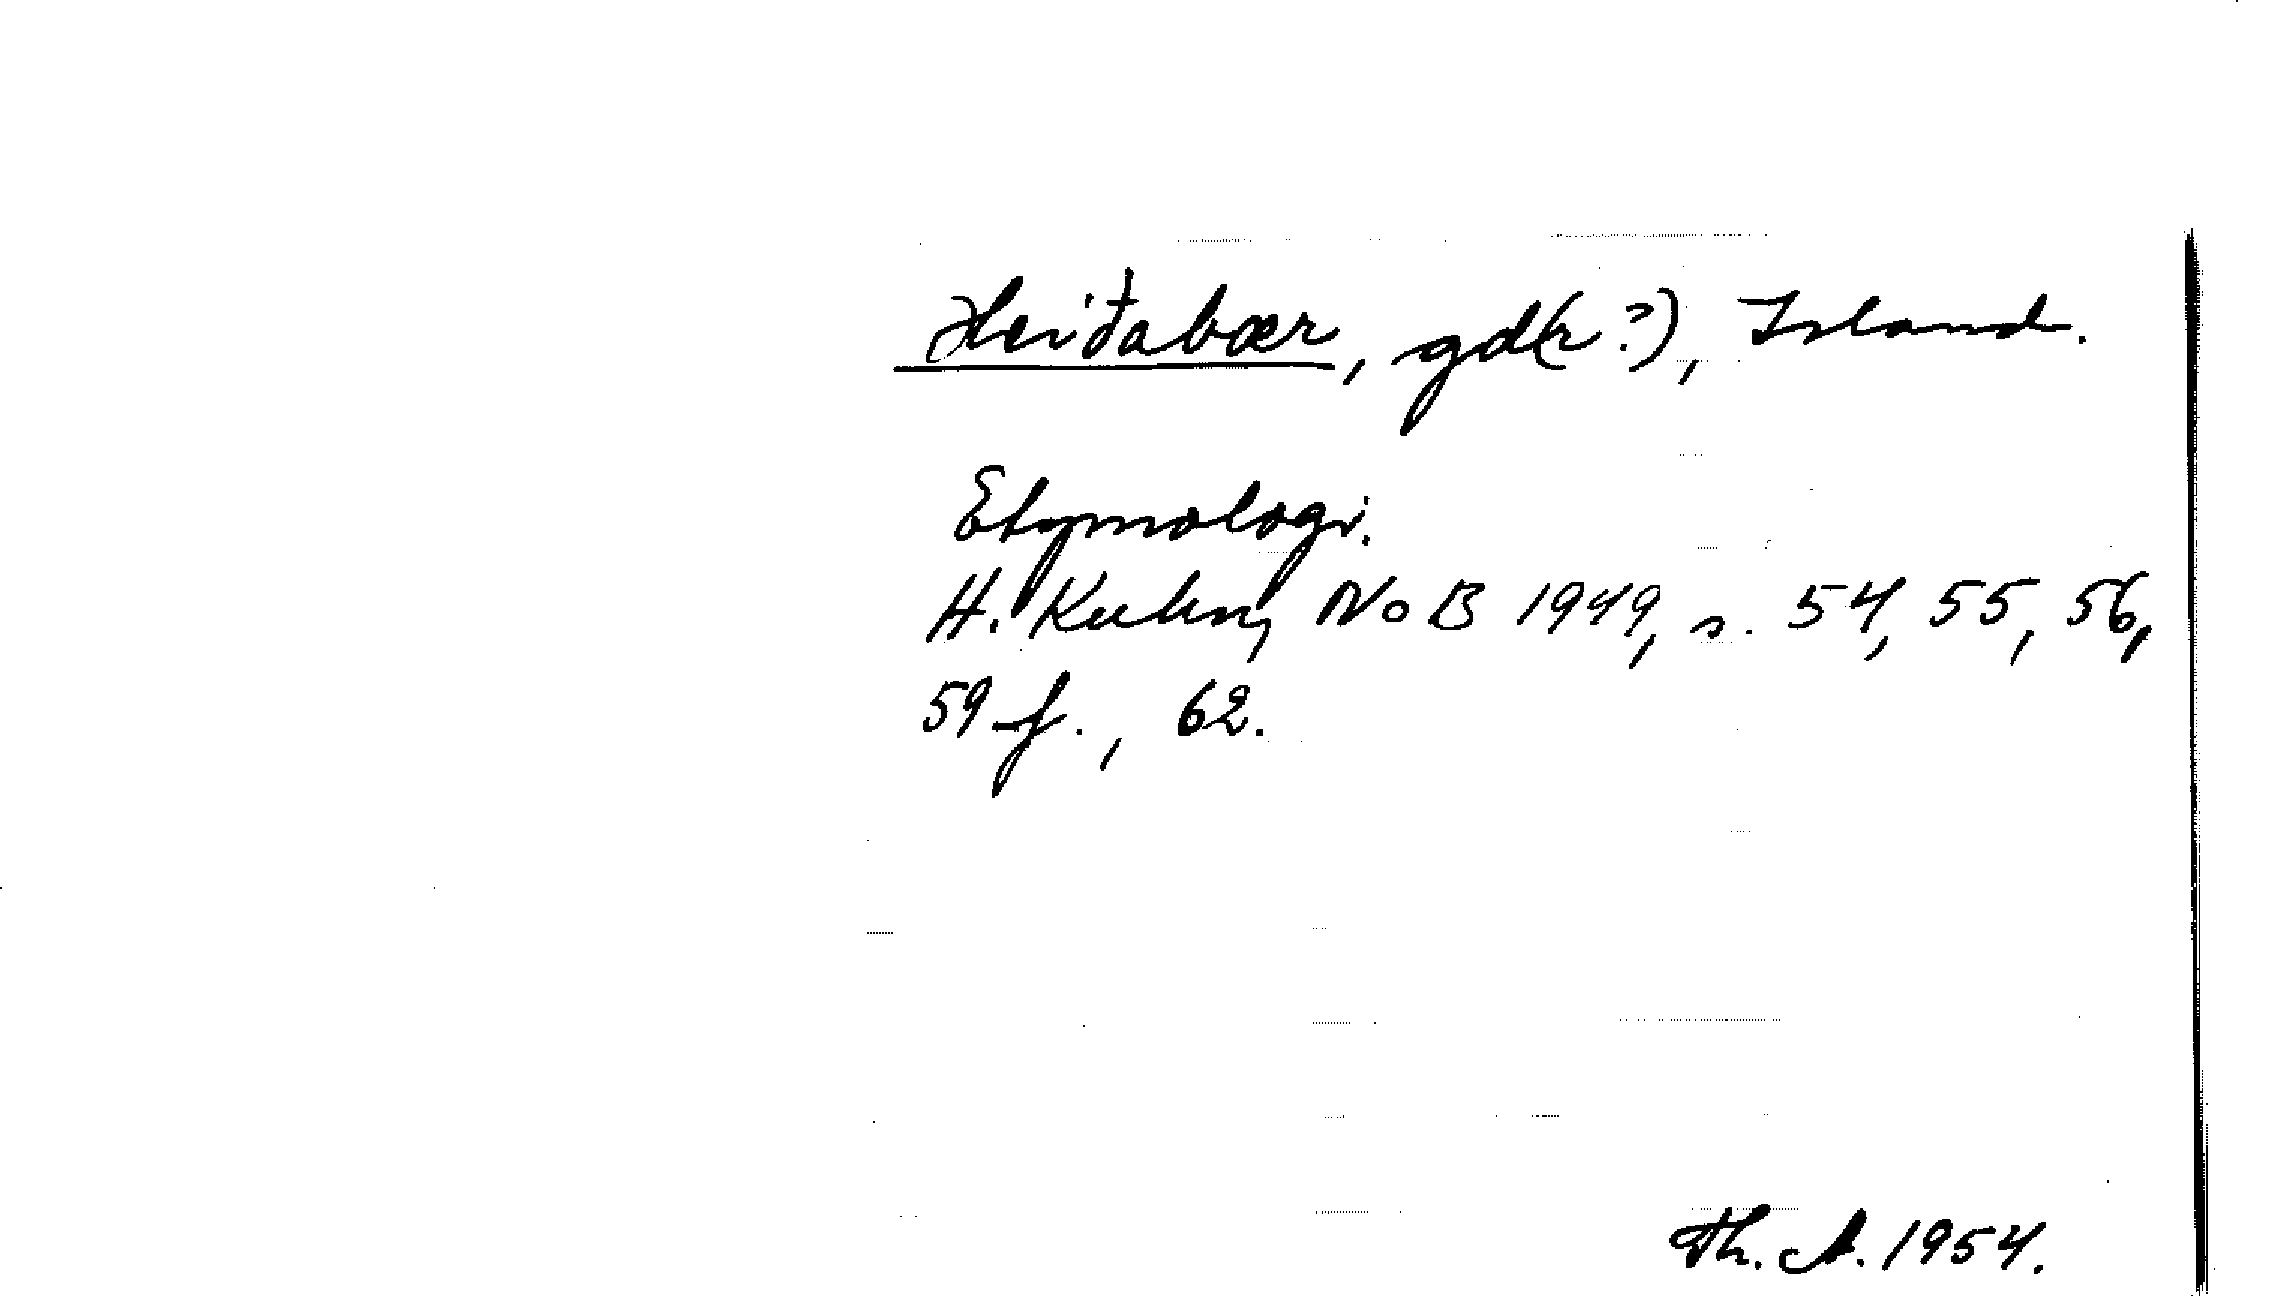 Heiðabær, gd(r?), Island.
Etymologi.
H. Kuhn, NoB 1949, s. 54, 55, 56,
59 f., 62.
Th. A. 1954.